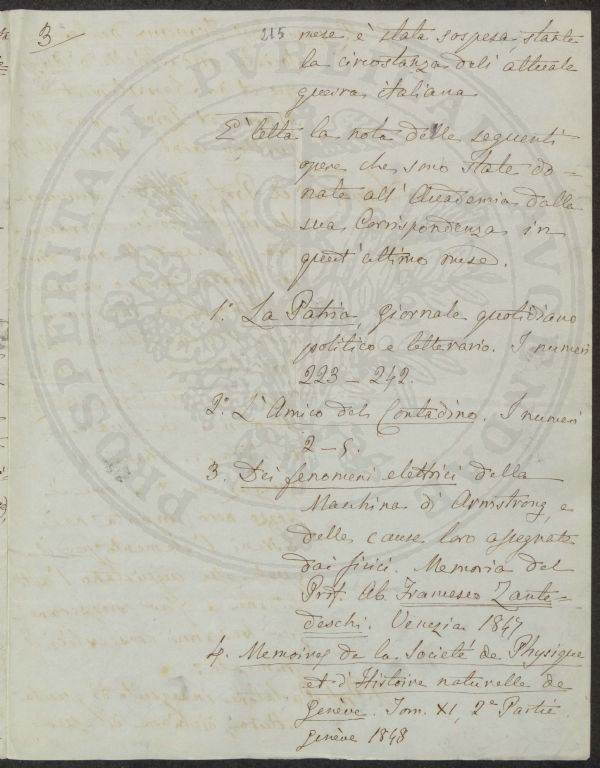 3
215
mese è stata sospesa, stante
la circostanza dell' attuale
guerra italiana
È letta la nota delle seguenti
opere che sono state do-
nate all' Accademia dalla
sua Corrispondenza in
quest' ultimo mese.
1.° La Patria, giornale quotidiano
politico e letterario. I numeri
223 – 242.
2.° L'Amico del Contadino. I numeri
2 – 5.
3. Dei fenomeni elettrici della
Macchina di Armstrong, e
delle cause loro assegnate
dai fisici. Memoria del
Prof. Ab. Francesco Zante-
deschi. Venezia 1847
4. Memoires de la Societé de Physique
et d'Histoire naturelle de
Genève. Tom. XI, 2.e Partie.
Genève 1848
PROSPERITATI PUBLICAE AUGENDAE